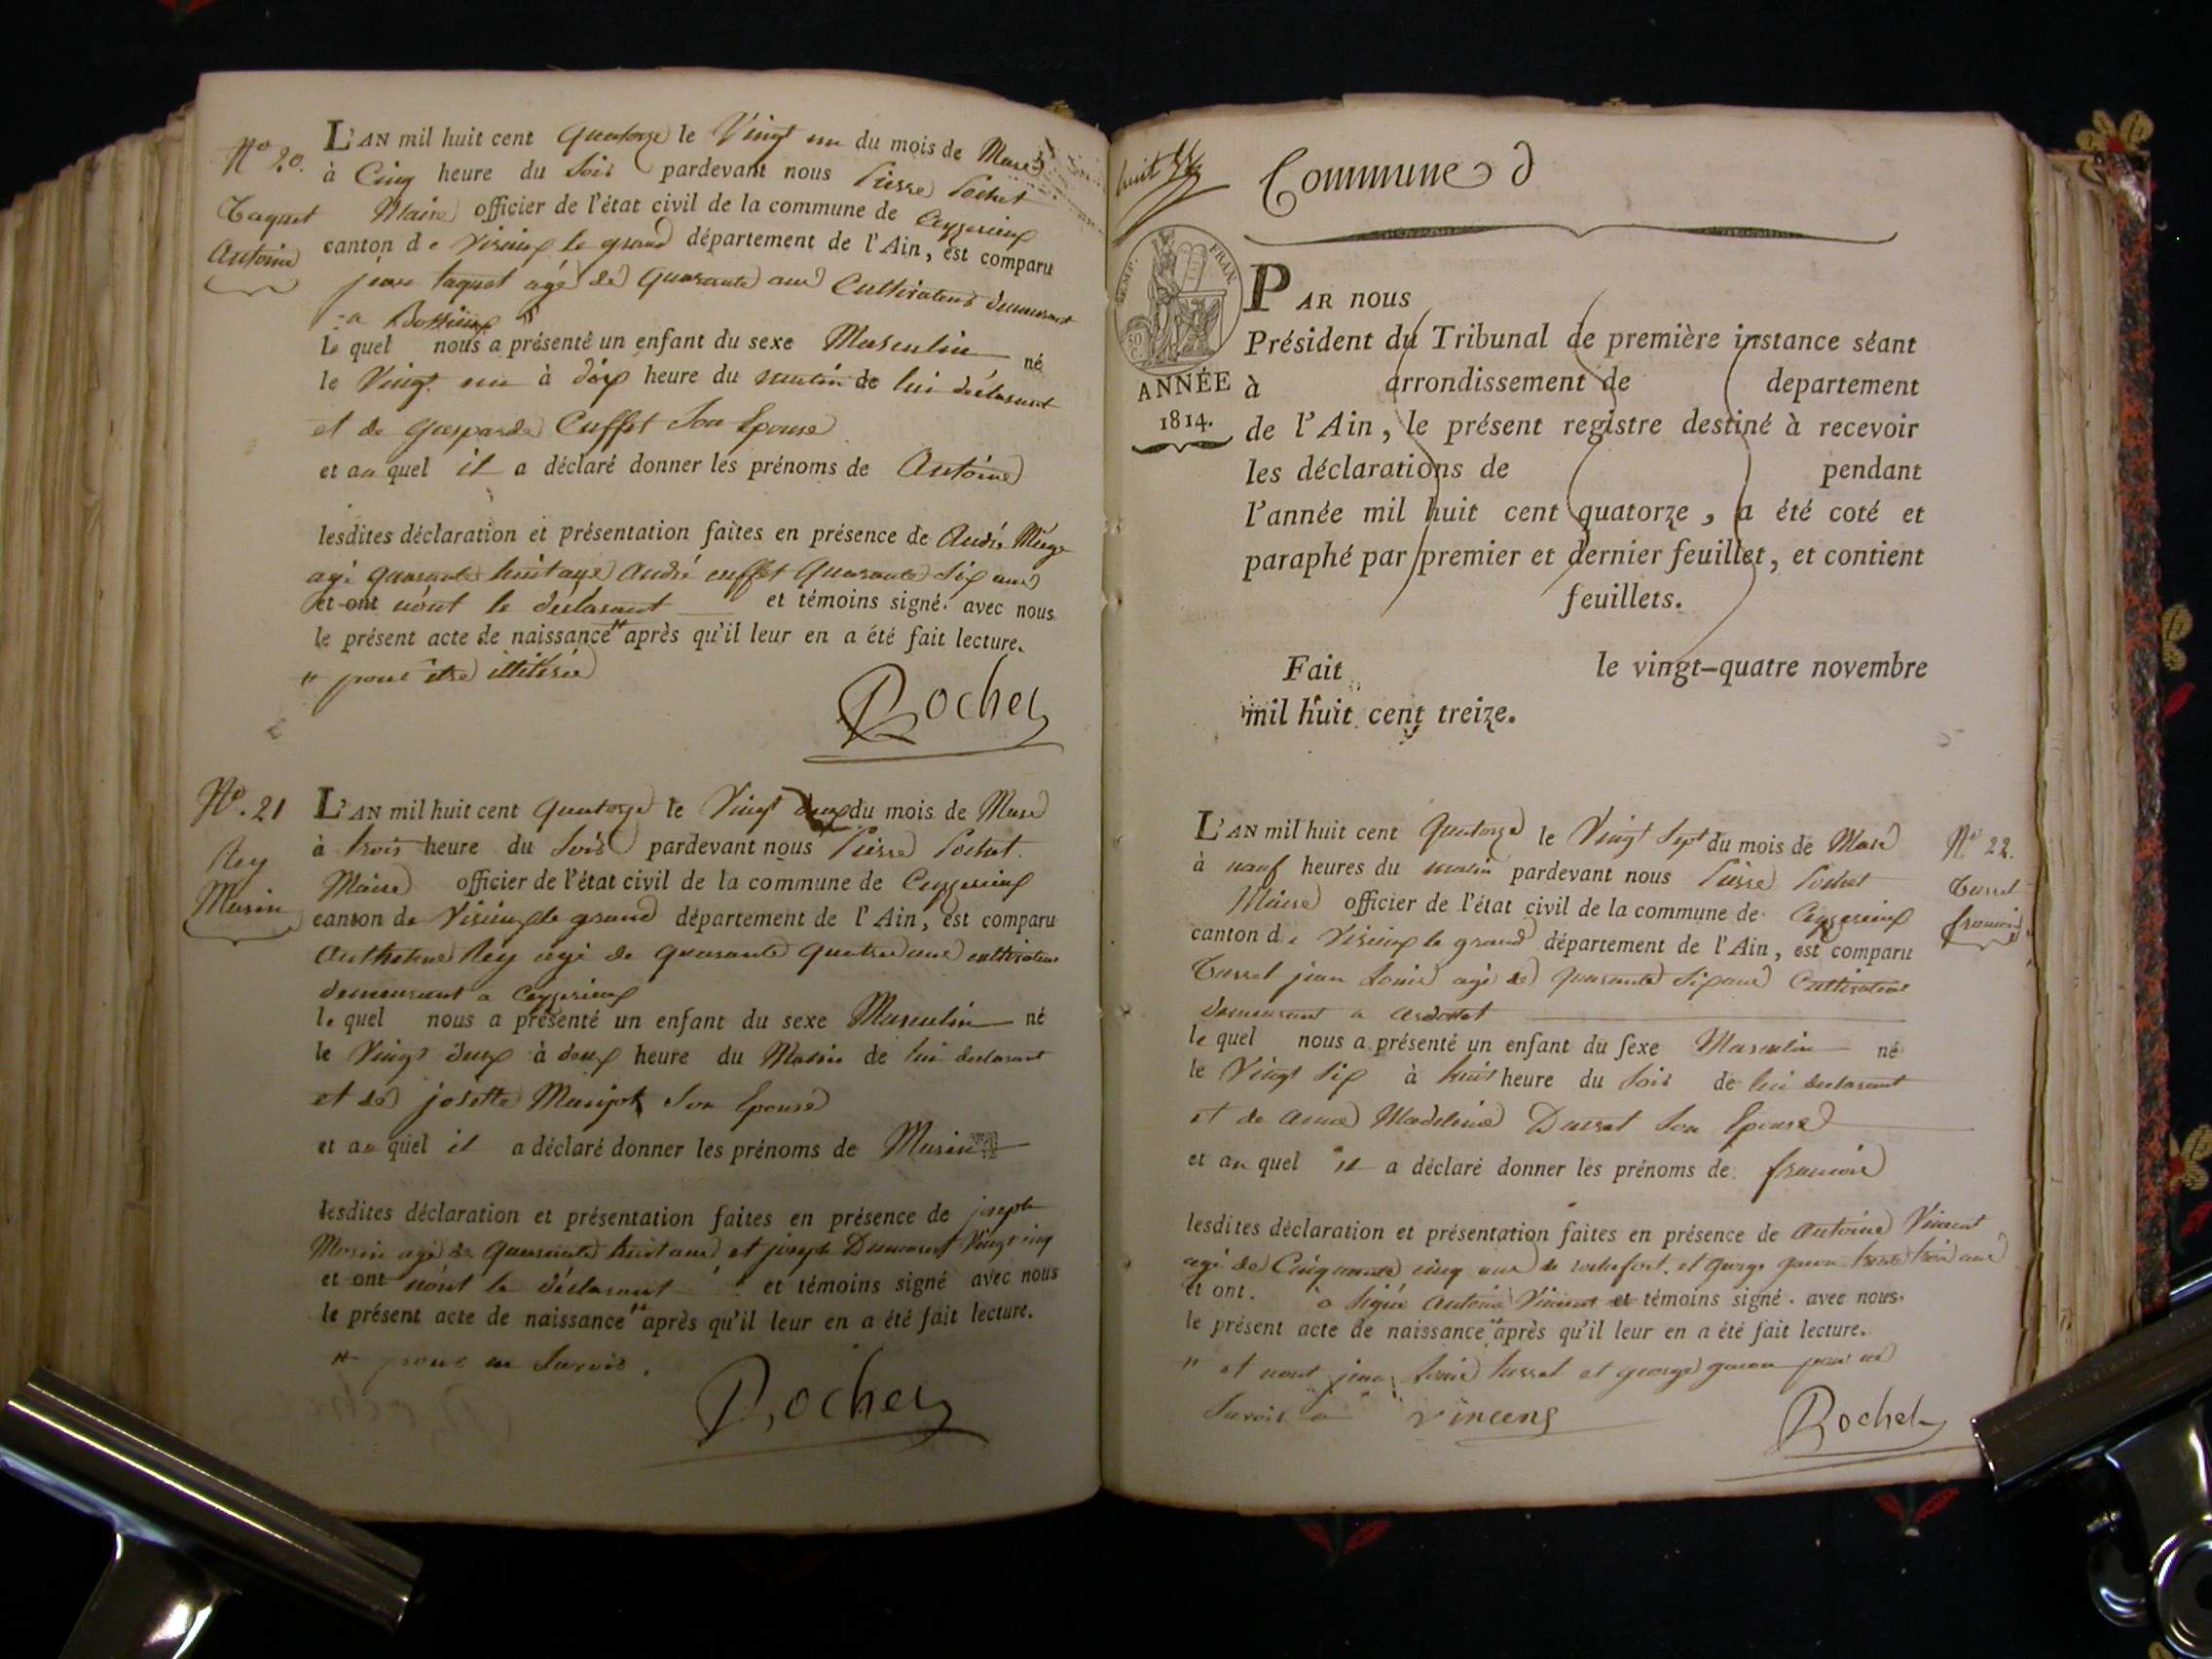 N° 20.
Taquet
Antoine
L'AN mil huit cent quatorze le Vingt un du mois de Mars
à Cinq heure du Soir pardevant nous Pierre Pochet
Maire officier de l'état civil de la commune de Ceyzerieux
canton de Virieux le grand département de l'Ain, est comparu
jean taquet agé de quarante ans Cultivateur demeurant
a
le quel nous a présenté un enfant du sexe Masculin né
le Vingt un à dix heure du matin de lui déclarant
et de gasparde Cuffet Son Epouse
et au quel il a déclaré donner les prénoms de Antoine
lesdites déclaration et présentation faites en présence de André Miège
agé quarante huit ans André cuffet quarante Six ans
et ont n'ont le déclarant et témoins signé. avec nous
le présent acte de naissance " après qu'il leur en a été fait lecture.
" pour être illitérée
Pochet
N°. 21
Rey
Marin
L'AN mil huit cent quatorze le Vingt deux du mois de Mars
à trois heure du Soir pardevant nous Pierre Pochet.
Maire officier de l'état civil de la commune de Ceyzerieux
canton de Virieux le grand département de l'Ain, est comparu
Anthelme Rey agé de quarante quatre ans cultivateur
demeurant a Ceyzerieux
le quel nous a présenté un enfant du sexe Masculin né
le Vingt deux à deux heure du Matin de lui declarant
et de josette Son Epouse
et au quel il a déclaré donner les prénoms de Marin
lesdites déclaration et présentation faites en présence de joseph
agé de quarante huit ans et joseph Dumarest Vingt cinq
et ont n'ont le déclarant et témoins signé avec nous
le présent acte de naissance " après qu'il leur en a été fait lecture.
" pour ne Savoir.
Pochet
huit
Commune d
TIMP. FRAN.
50 C.
ANNÉE
1814.
PAR nous
Président du Tribunal de première instance séant
à arrondissement de departement
de l'Ain, le présent registre destiné à recevoir
les déclarations de pendant
l'année mil huit cent quatorze, a été coté et
paraphé par premier et dernier feuillet, et contient
feuillets.
Fait le vingt-quatre novembre
mil huit cent treize.
N° 22.
Turrel
francois
L'AN mil huit cent quatorze le Vingt Sept du mois de Mars
à neuf heures du matin pardevant nous Pierre Pochet
Maire officier de l'état civil de la commune de Ceyzerieux
canton de Virieux le grand département de l'Ain, est comparu
Turrel jean Louis agé de quarante Six ans Cultivateur
demeurant a ardosset
le quel nous a présenté un enfant du sexe Masculin né
le Vingt Six à huit heure du Soir de lui declarant
et de anne Madeleine Son Epouse
et au quel il a déclaré donner les prénoms de francois
lesdites déclaration et présentation faites en présence de Antoine Vincent
agé de Cinquante cinq ans de rochefort. et george trente trois ans
et ont. a signé Antoine Vincent et témoins signé. avec nous.
le présent acte de naissance " après qu'il leur en a été fait lecture.
" et nont jean Louis turrel et george pour ne
Savoir
vincens
Pochet